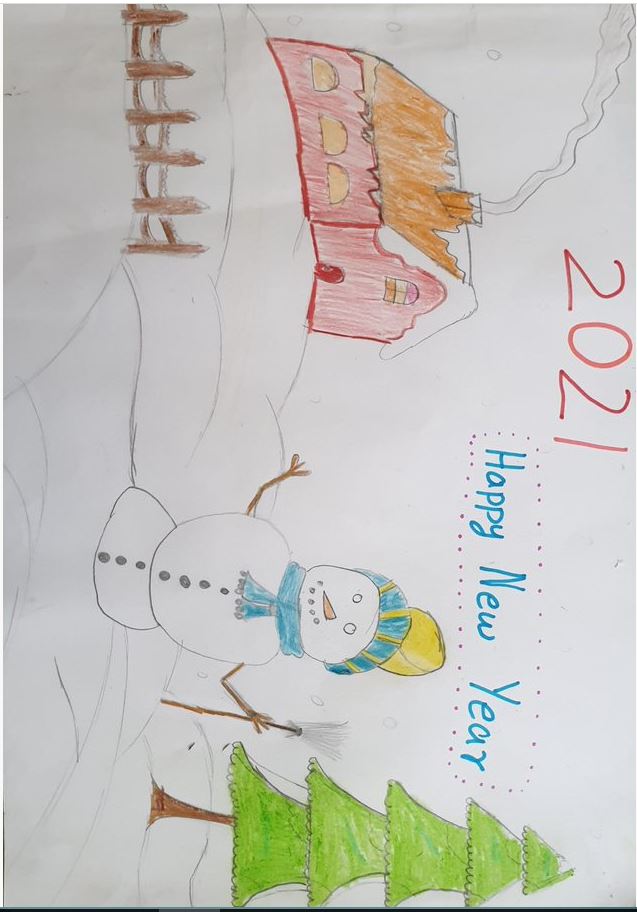 2021
Happy New Year